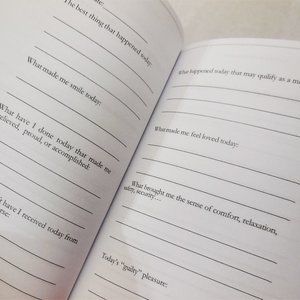 The best thing that happened today:
What made me smile today:
What have I done today that made me
relieved, proud, or accomplished:
have I received today from
What happened today that may qulify as a
What made me feel loved today:
What brought me the sense of comfort, relaxation,
safety, security…
Today's "guilty" pleasure: